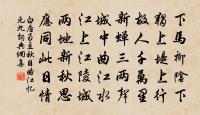 下馬柳陰下
獨上堤上行
故人千萬里
新蟬三兩聲
城中曲江水
江上江陵城
兩地新秋思
應同此日情
白居易立秋日曲江忆
元九詞典網集